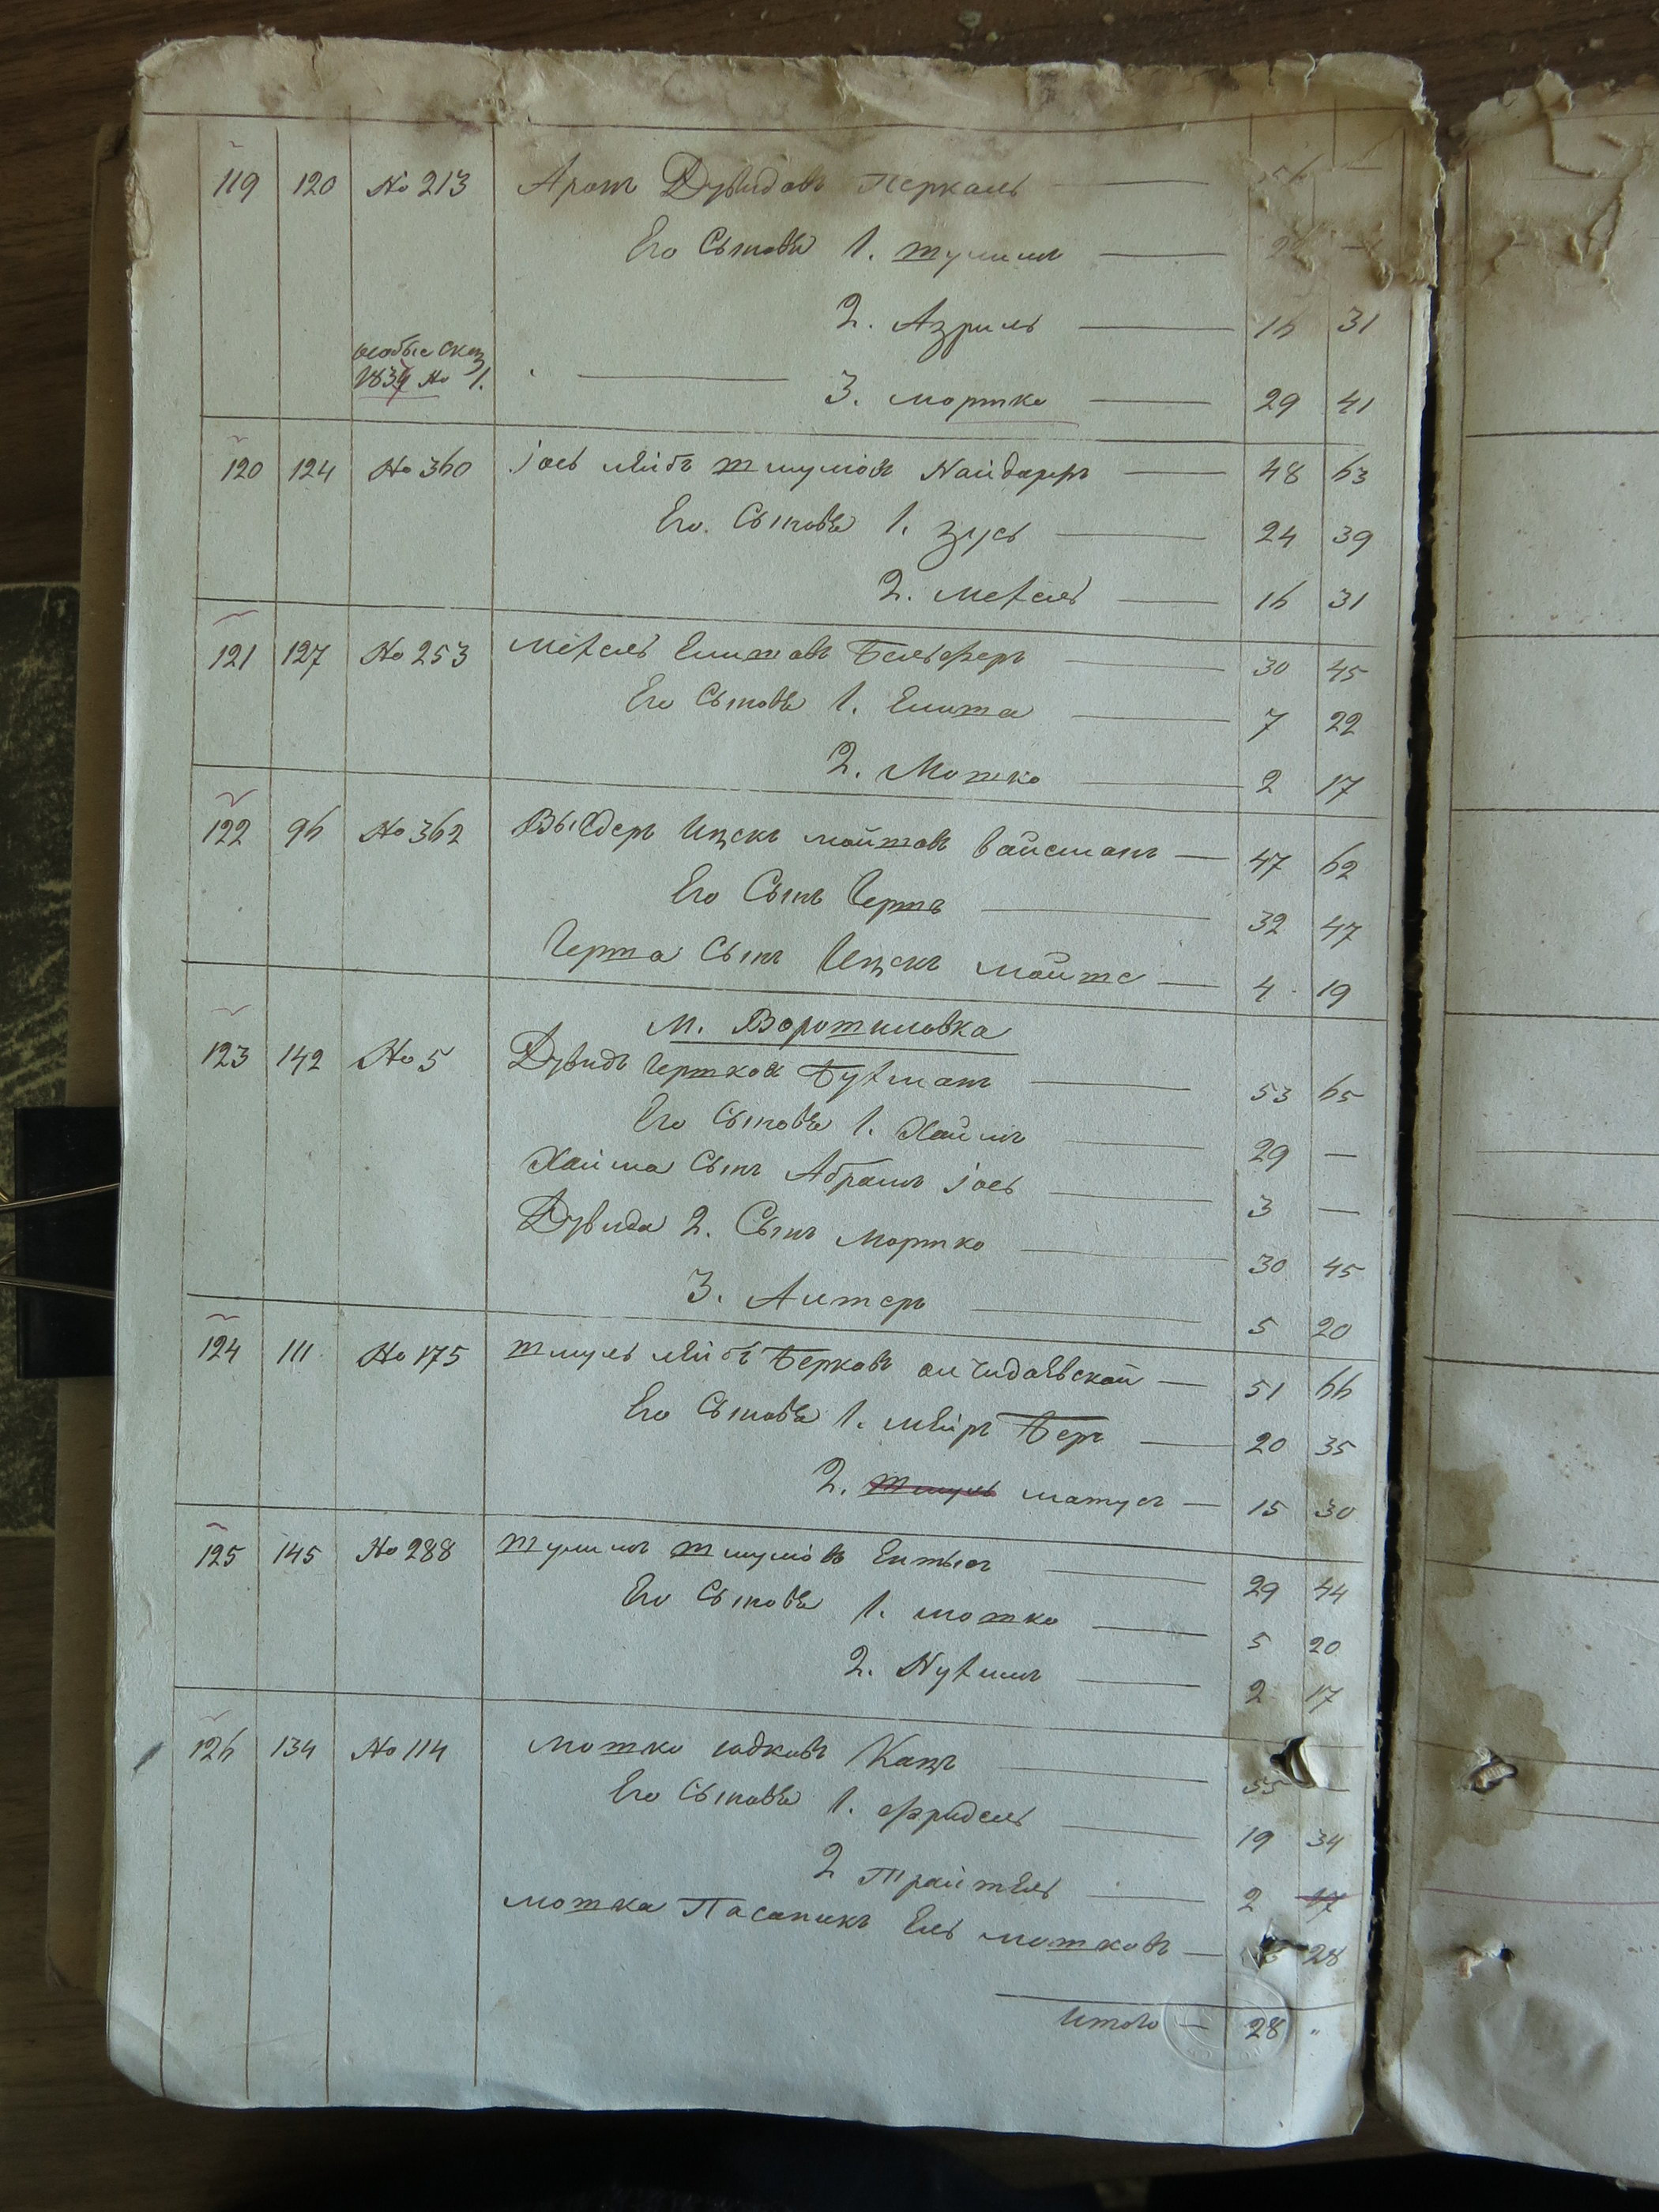 119 120 № 213 Аронъ Дувидовъ Перкаль — 56 —
Его Сыновья 1. Шулимъ — —
2. Азриль — 16 31
особые сказ
1834 № 1. — 3. мортко — 29 41
120 124 № 360 іось лейбъ шмулёвъ Найдеръ — 48 63
Его Сыновья 1. Зусь — 24 39
2. Мехель — 16 31
121 127 № 253 Мехель Елишовъ Бельферъ — 30 45
Его Сыновья 1. Елиша — 7 22
2. Мошко — 2 17
122 96 № 362 Ицекъ мойшовъ вайсманъ — 47 62
Его Сынъ Герша — 32 47
Герша Сынъ Ицекъ мойше — 4 19
м. Ворошиловка
123 142 № 5 Дувидъ Гершковъ Бухманъ — 53 65
Его Сыновья 1. Хаимъ — 29 —
Хаима Сынъ Абрамъ іось — 3 —
Дувида 2. Сынъ Мортко — 30 45
3. Алтеръ — 5 20
124 111 № 175 шмуль лейбъ Берковъ — 51 66
Его Сыновья 1. мейръ Беръ — 20 35
2. шмуль матусъ — 15 30
125 145 № 288 Шулимъ шмулёвъ — 29 44
Его Сыновья 1. мошко — 5 20
2. Нухимъ — 2 17
126 134 № 114 Мошко юдковъ Кацъ — 55 —
Его Сыновья 1. Фридель — 19 34
2 Трайтель — 2 17
мошка Пасынокъ Ель мошковъ — 28
Итого — 28 "